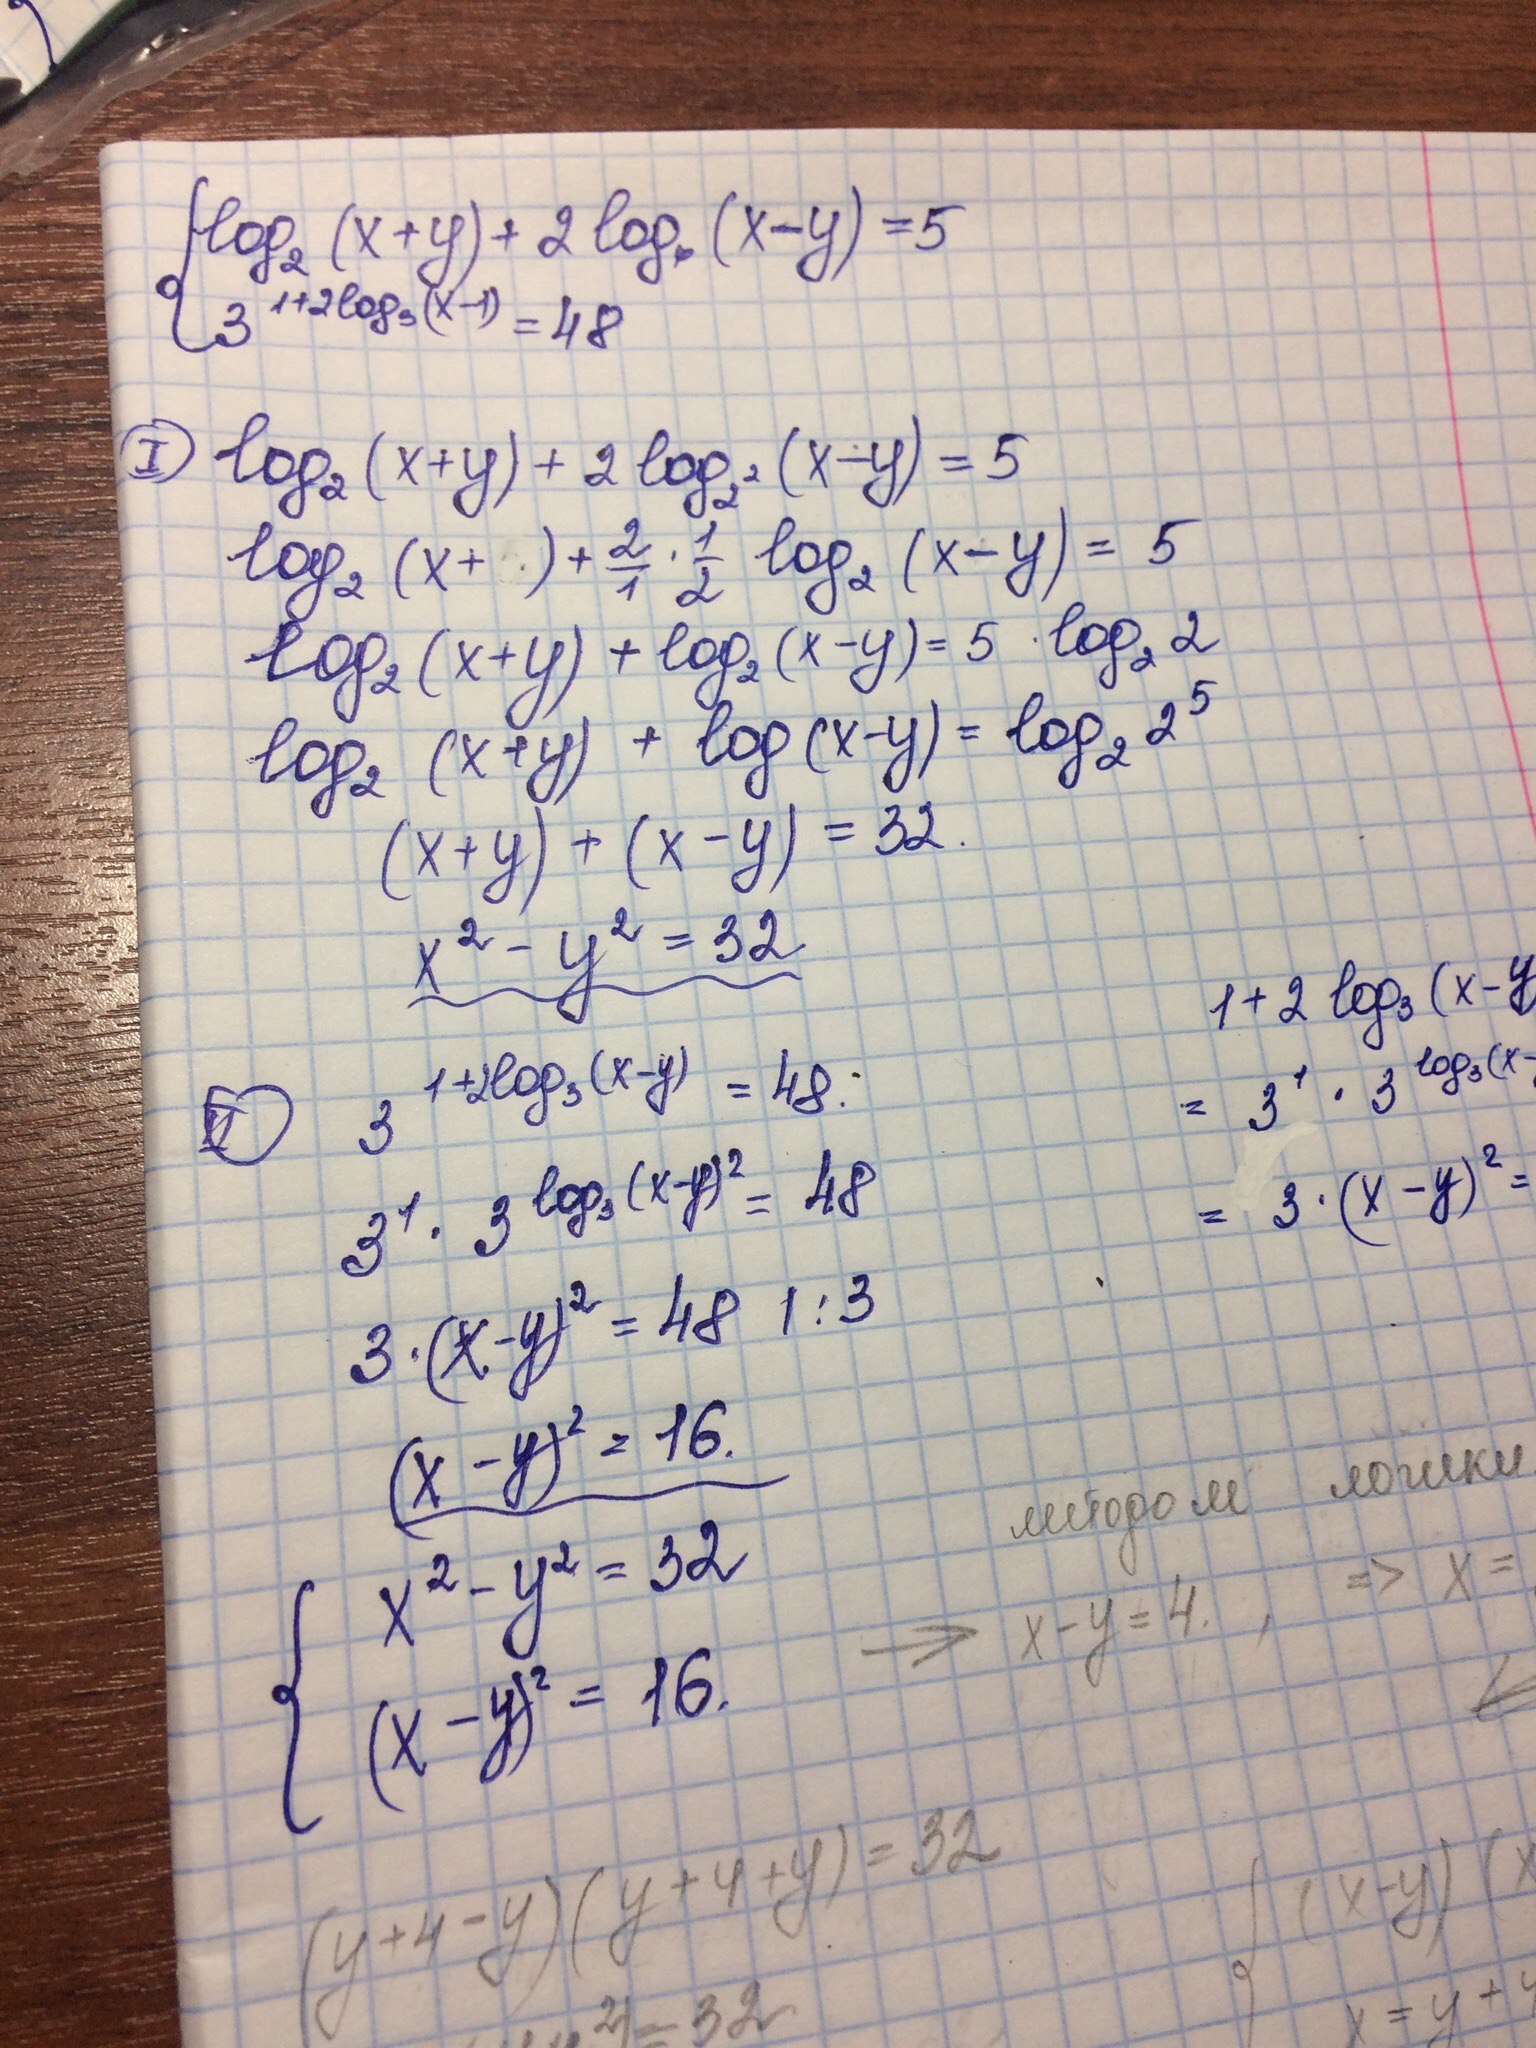 log₂(x+y) + 2log₄(x-y) = 5
3^(1+2log₃(x-1)) = 48
I log₂(x+y) + 2log_(2²)(x-y) = 5
log₂(x+ ) + 2/1 · 1/2 log₂(x-y) = 5
log₂(x+y) + log₂(x-y) = 5 · log₂2
log₂(x+y) + log(x-y) = log₂2⁵
(x+y) + (x-y) = 32.
x² - y² = 32
II 3^(1+2log₃(x-y)) = 48
3¹ · 3^(log₃(x-y)²) = 48
3·(x-y)² = 48 |:3
(x-y)² = 16.
x² - y² = 32
(x-y)² = 16.
1+2log₃(x-y
= 3¹ · 3^(log₃(x-
= 3·(x-y)² =
методом логики
→ x-y=4. , => x=
(y+4-y)(y+4+y) = 32
²) = 32
(x-y)(x
x = y + 4